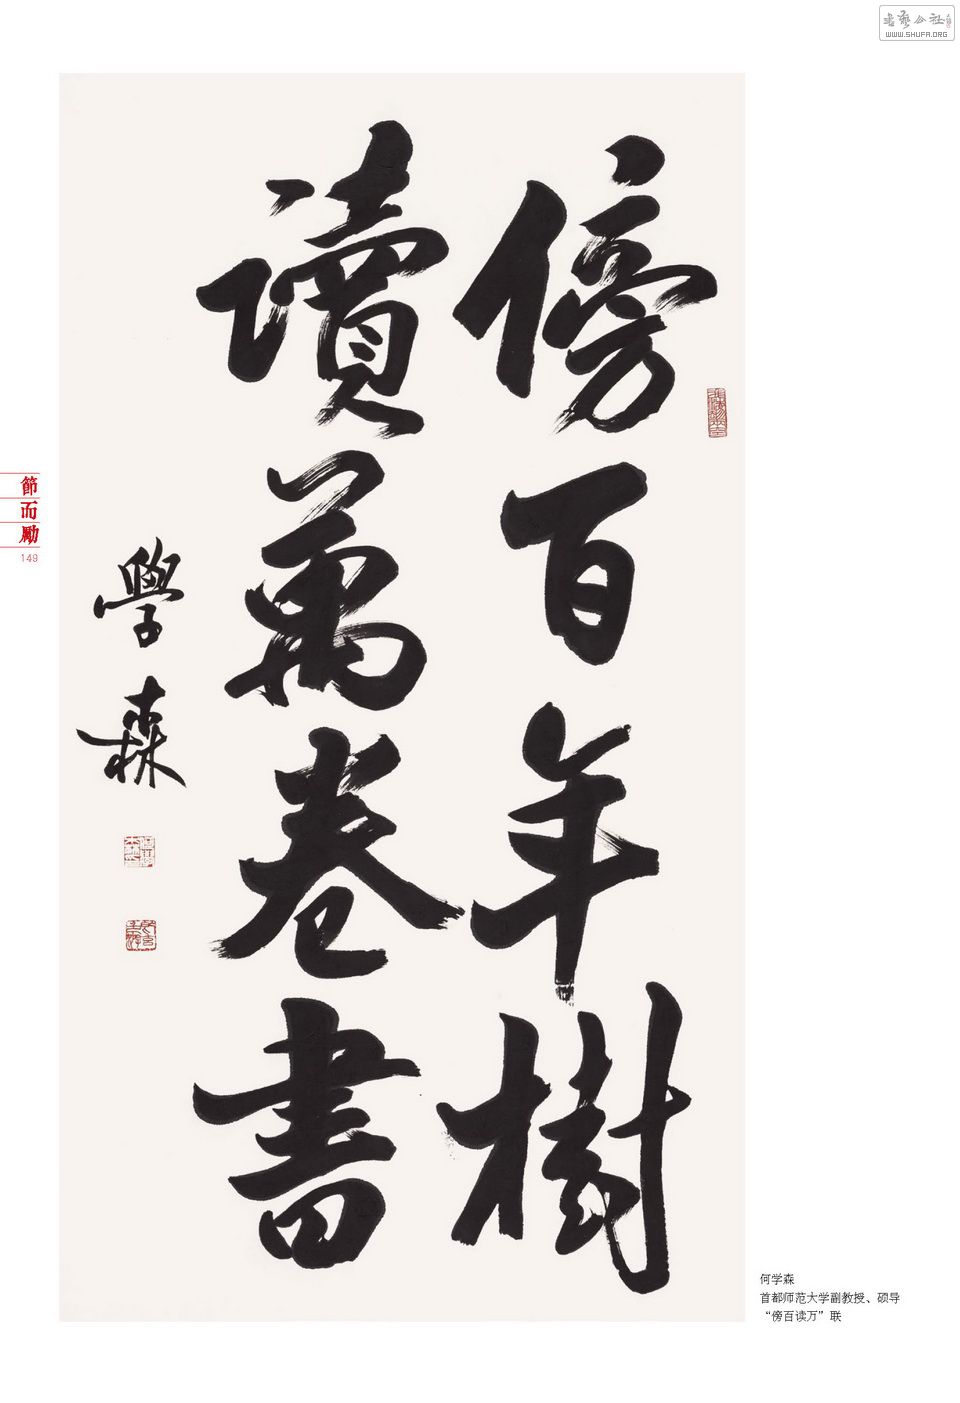 書藝公社
WWW.SHUFA.ORG
傍百年樹
讀萬卷書
學森
節而勵
149
何学森
首都师范大学副教授、硕导
“傍百读万”联